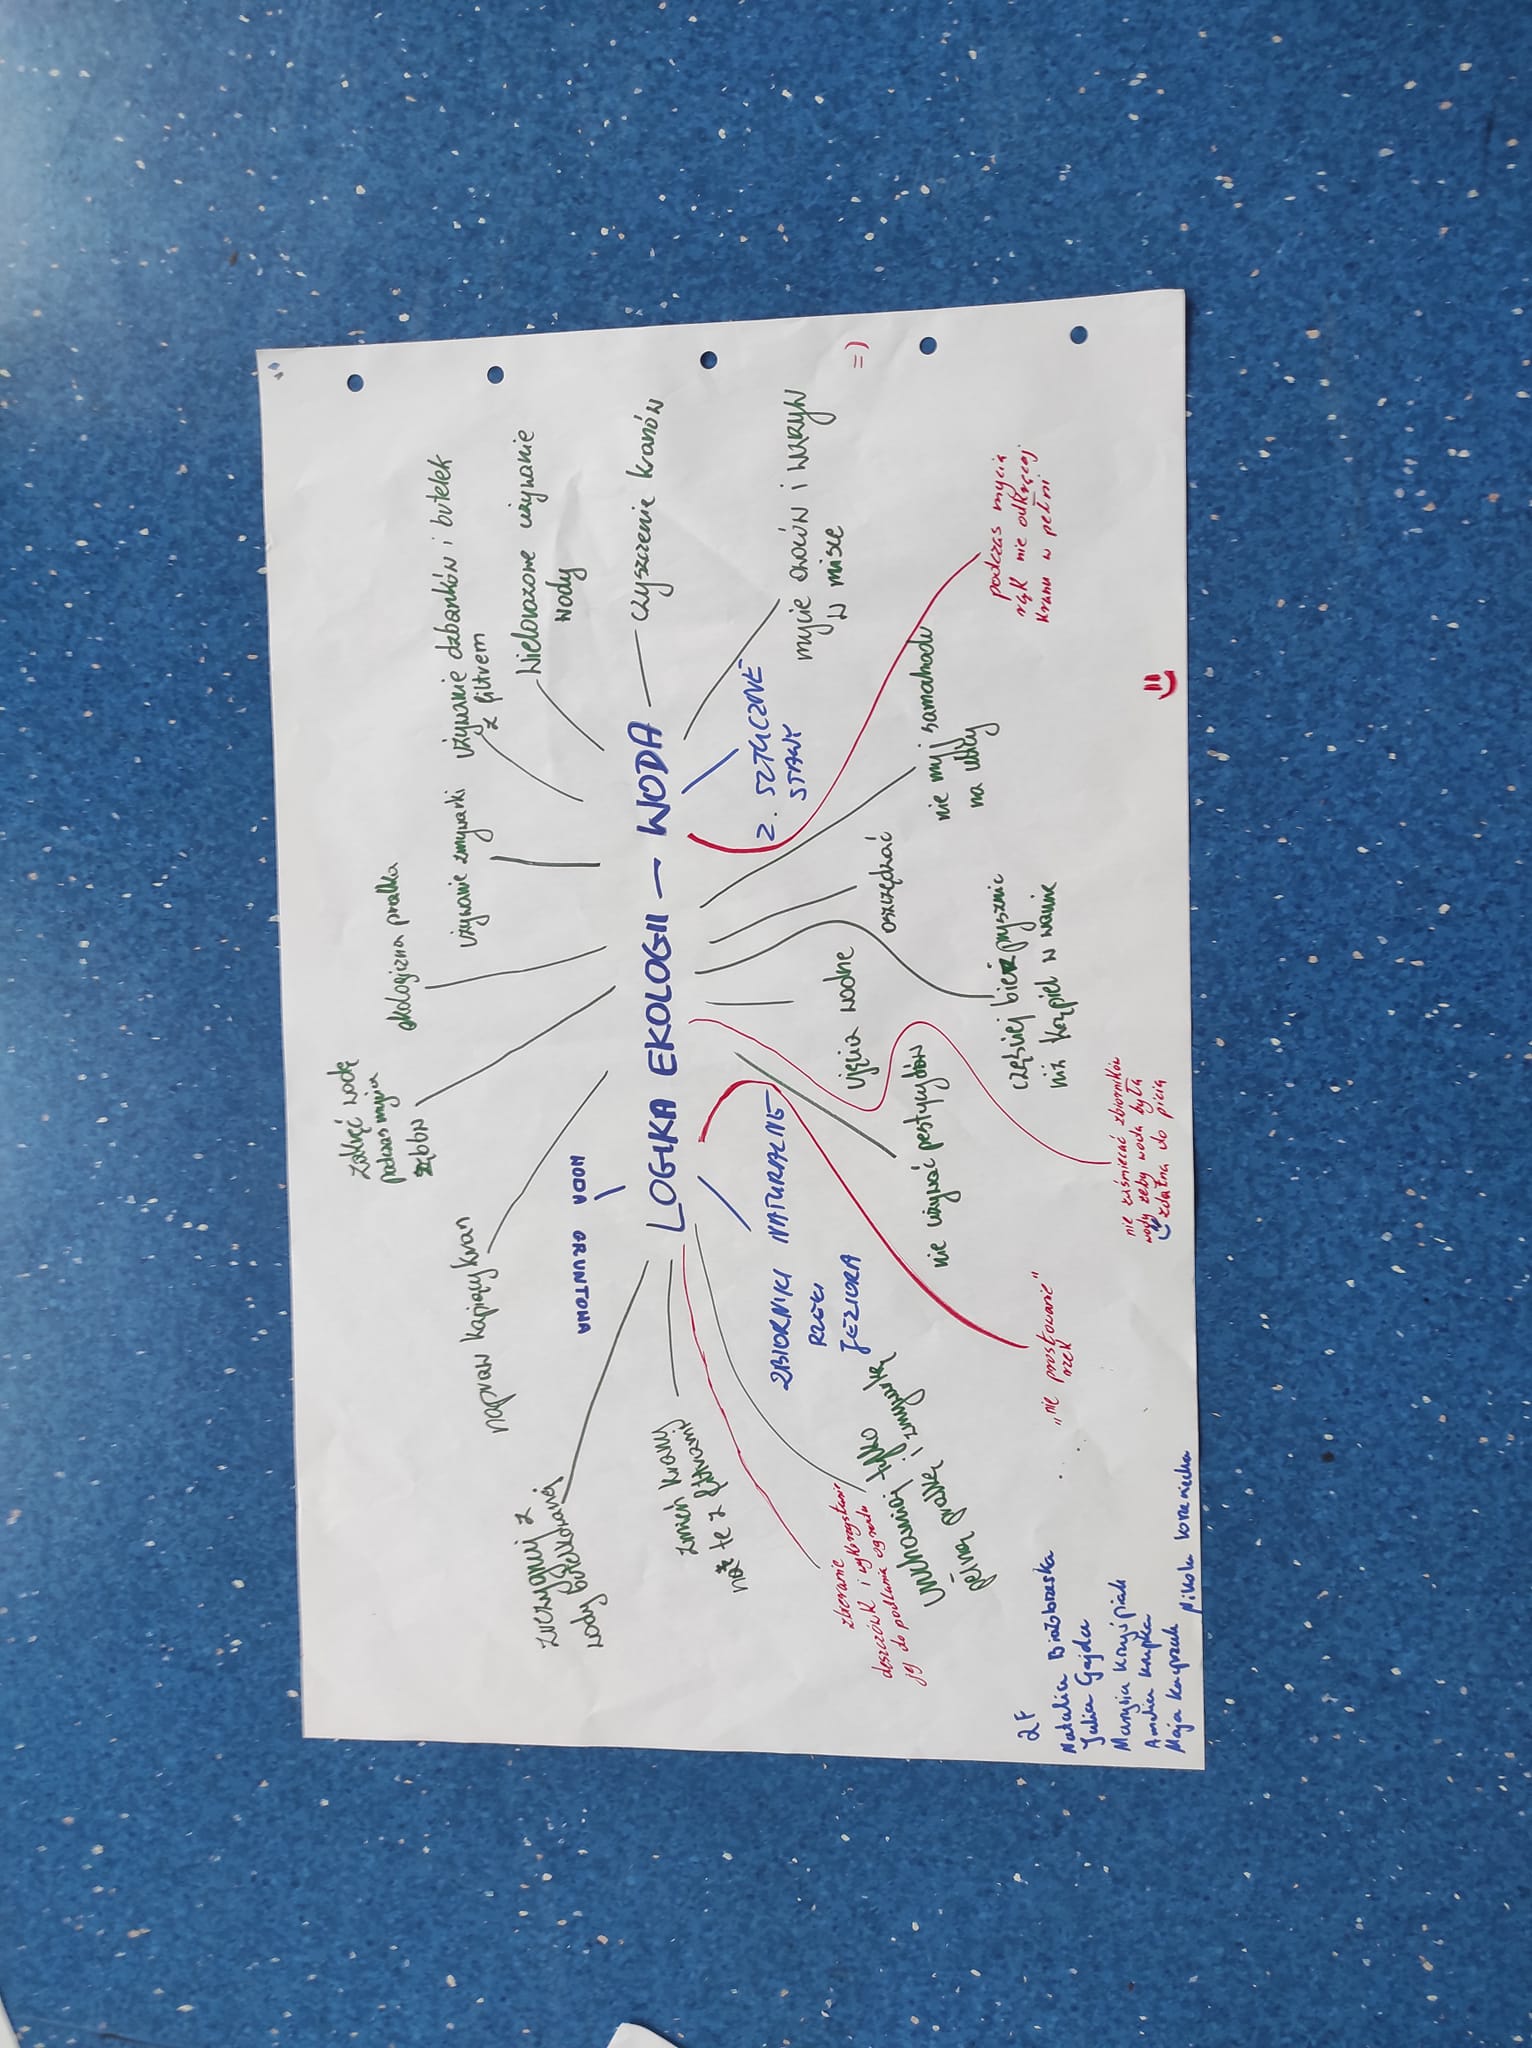 LOGIKA EKOLOGII - WODA
zakręć wodę
podczas mycia
zębów
ekologiczna pralka
używanie zmywarki
używanie dzbanków i butelek
z filtrem
wielorazowe używanie
wody
czyszczenie kranów
mycie owoców i warzyw
w misce
=)
2. SZTUCZNE
STAWY
podczas mycia
rąk nie odkręcaj
kranu w pełni
nie myj samochodu
na ulicy
oszczędzać
częściej bierz prysznic
niż kąpiel w wannie
ujęcia wodne
nie zaśmiecać zbiorników
wody żeby woda była
zdatna do picia
nie używać pestycydów
"nie prostowanie"
rzek
ZBIORNIKI NATURALNE
RZEKI
JEZIORA
uruchamiaj tylko
pełną pralkę i zmywarkę
zbieranie
deszczówki i wykorzystanie
jej do podlania ogrodu
zmień krany
na te z filtrami
zrezygnuj z
wody butelkowanej
WODA GRUNTOWA
napraw kapiący kran
2F
Natalia Białobrzeska
Julia Gajda
Marysia
Amelia
Maja
Nikola